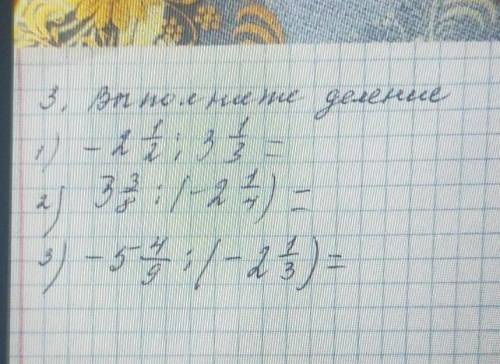 3. Выполните деление
1) - 2 1/2 : 3 1/3 =
2) 3 3/8 : (- 2 1/4) =
3) - 5 4/9 : (- 2 1/3) =